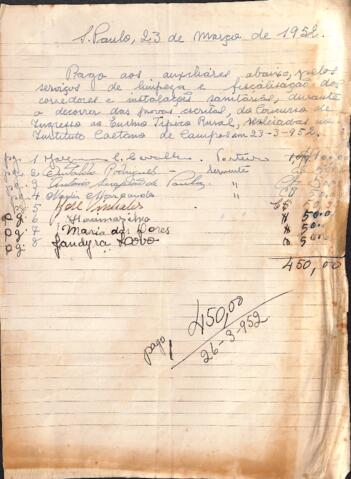 S. Paulo, 23 de Março de 1952.
Pago aos auxiliares, abaixo, pelos
serviços de limpeza e fiscalisação dos
corredores e instalações sanitárias, durante
o decorrer das provas escritas, do Concurso de
Ingresso ao Ensino Típico Rural, realizadas no
Instituto Caetano de Campos em 23-3-952.
pg. 1 Porteiro 100,00
pg. 2 Rodrigues - servente 50,00
pg. 3 Antonio de Paula " 50,00
pg. 4 " 50,00
pg. 5 José 50,00
pg. 6 " 50,00
pg. 7 Maria das Dores " 50,00
pg. 8 Jandyra Lobo " 50,00
450,00
450,00
pago 26-3-952